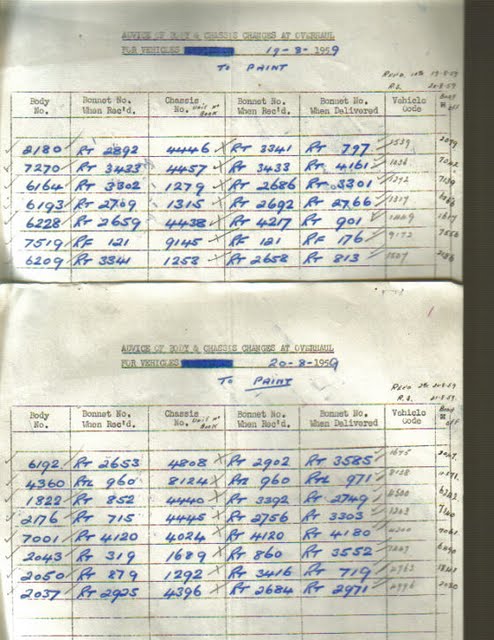 ADVICE OF BODY & CHASSIS CHANGES AT OVERHAUL
FOR VEHICLES 19-8-1959
TO PAINT
19-8-59
20-8-59
Body No. Bonnet No. When Rec'd. Chassis No. Unit No Book Bonnet No. When Rec'd. Bonnet No. When Delivered Vehicle Code Body off
2180 RT 2892 4446 RT 3341 RT 797 1539
7270 RT 3433 4457 RT 3433 RT 4161
6164 RT 3302 1279 RT 2686 RT 3301
6193 RT 2709 1315 RT 2692 RT 2766 1317
6228 RT 2659 4438 RT 4217 RT 901 1617
7519 RF 121 9145 RF 121 RF 176 9172
6209 RT 3341 1253 RT 2658 RT 813 1507
ADVICE OF BODY & CHASSIS CHANGES AT OVERHAUL
FOR VEHICLES 20-8-1959
TO PAINT
21-8-59
Body No. Bonnet No. When Rec'd. Chassis No. Unit No Book Bonnet No. When Rec'd. Bonnet No. When Delivered Vehicle Code Body off
6192 RT 2653 4808 RT 2902 RT 3585 1675
4360 RTL 960 8124 RTL 960 RTL 971
1822 RT 852 4440 RT 3392 RT 2749
2176 RT 715 4445 RT 2756 RT 3303
7001 RT 4120 4024 RT 4120 RT 4180
2043 RT 319 1689 RT 860 RT 3552
2050 RT 879 1292 RT 3416 RT 719
2037 RT 2925 4396 RT 2684 RT 2971